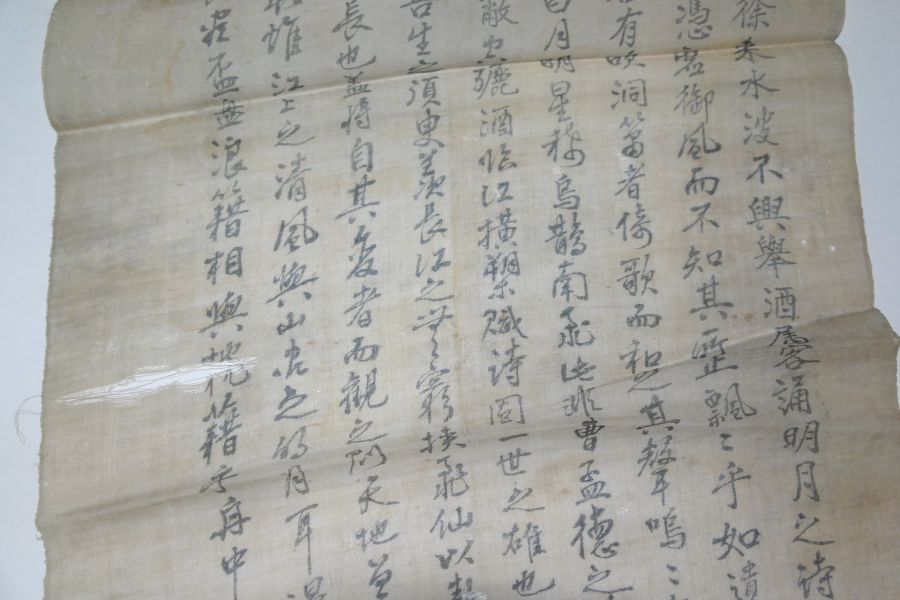 徐來水波不興舉酒屬客誦明月之詩
憑虛御風而不知其所止飄〻乎如遺
有吹洞簫者倚歌而和之其聲嗚〻
月明星稀烏鵲南飛此非曹孟德之
釃酒臨江橫槊賦詩固一世之雄也
吾生之須臾羨長江之無窮挾飛仙以
長也盖將自其变者而觀之則天地曾
惟江上之清風與山間之明月耳
盡盃盤浪籍相與枕籍乎舟中